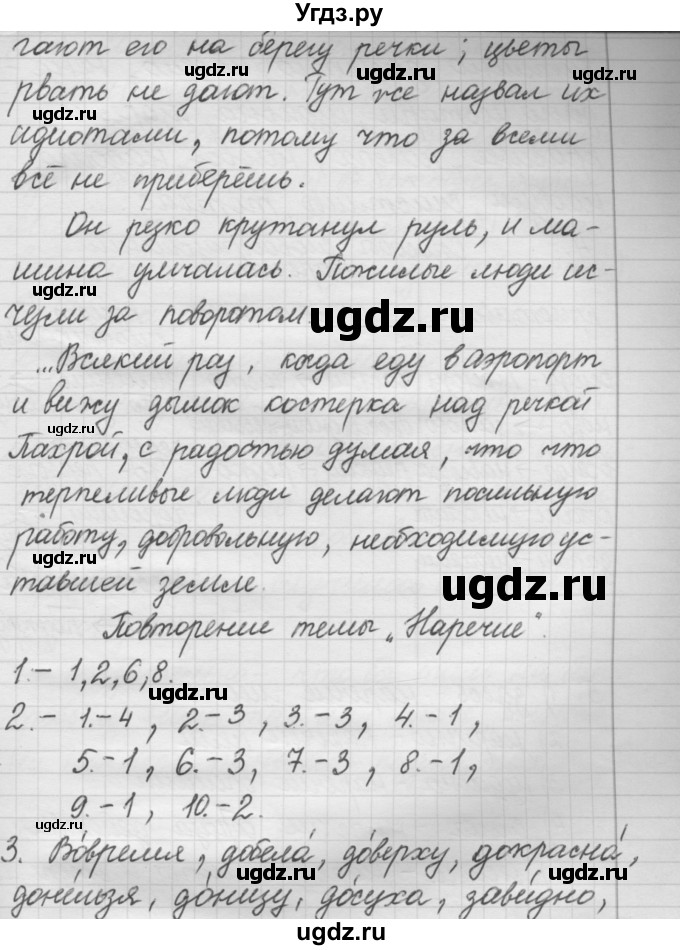 Угдз.ру
гают его на берегу речки; цветы
рвать не дают. Тут же назвал их
идиотами, потому что за всеми
всё не приберёшь.
Он резко крутанул руль, и ма-
шина умчалась. Пожилые люди ис-
чезли за поворотом.
...Всякий раз, когда еду в аэропорт
и вижу дымок костерка над речкой
Пахрой, с радостью думая, что что
терпеливые люди делают посильную
работу, добровольную, необходимую ус-
тавшей земле.
Повторение темы „Наречие".
1.- 1,2,6,8.
2.- 1.-4, 2.-3, 3.-3, 4.-1,
5.-1, 6.-3, 7.-3, 8.-1,
9.-1, 10.-2.
3. Во́время, добела́, до́верху, докрасна́,
доне́льзя, до́низу, до́суха, зави́дно,
©ugdz.ru